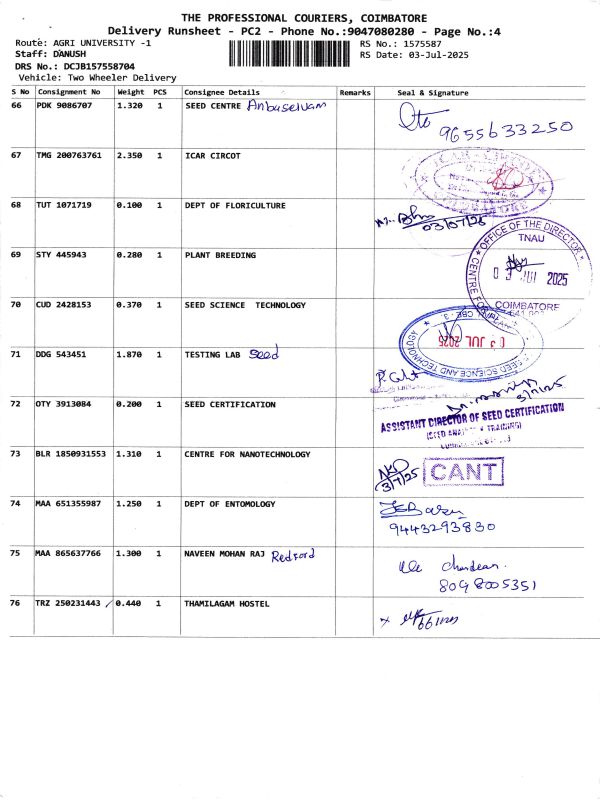 THE PROFESSIONAL COURIERS, COIMBATORE
Delivery Runsheet - PC2 - Phone No.:9047080280 - Page No.:4
Route: AGRI UNIVERSITY -1 RS No.: 1575587
Staff: DANUSH RS Date: 03-Jul-2025
DRS No.: DCJB157558704
Vehicle: Two Wheeler Delivery
S No Consignment No Weight PCS Consignee Details Remarks Seal & Signature
66 PDK 9086707 1.320 1 SEED CENTRE Anbuselvam
9655633250
67 TMG 200763761 2.350 1 ICAR CIRCOT
68 TUT 1071719 0.100 1 DEPT OF FLORICULTURE
03/07/25
69 STY 445943 0.280 1 PLANT BREEDING
OFFICE OF THE DIRECTOR
TNAU
03 JUL 2025
COIMBATORE
70 CUD 2428153 0.370 1 SEED SCIENCE TECHNOLOGY
03 JUL 2025
SEED SCIENCE AND TECHNOLOGY
71 DDG 543451 1.870 1 TESTING LAB Seed
3/7/25
72 OTY 3913084 0.200 1 SEED CERTIFICATION
ASSISTANT DIRECTOR OF SEED CERTIFICATION
73 BLR 1850931553 1.310 1 CENTRE FOR NANOTECHNOLOGY
3/7/25
CANT
74 MAA 651355987 1.250 1 DEPT OF ENTOMOLOGY
9443293830
75 MAA 865637766 1.300 1 NAVEEN MOHAN RAJ Redford
8098005351
76 TRZ 250231443 0.440 1 THAMILAGAM HOSTEL